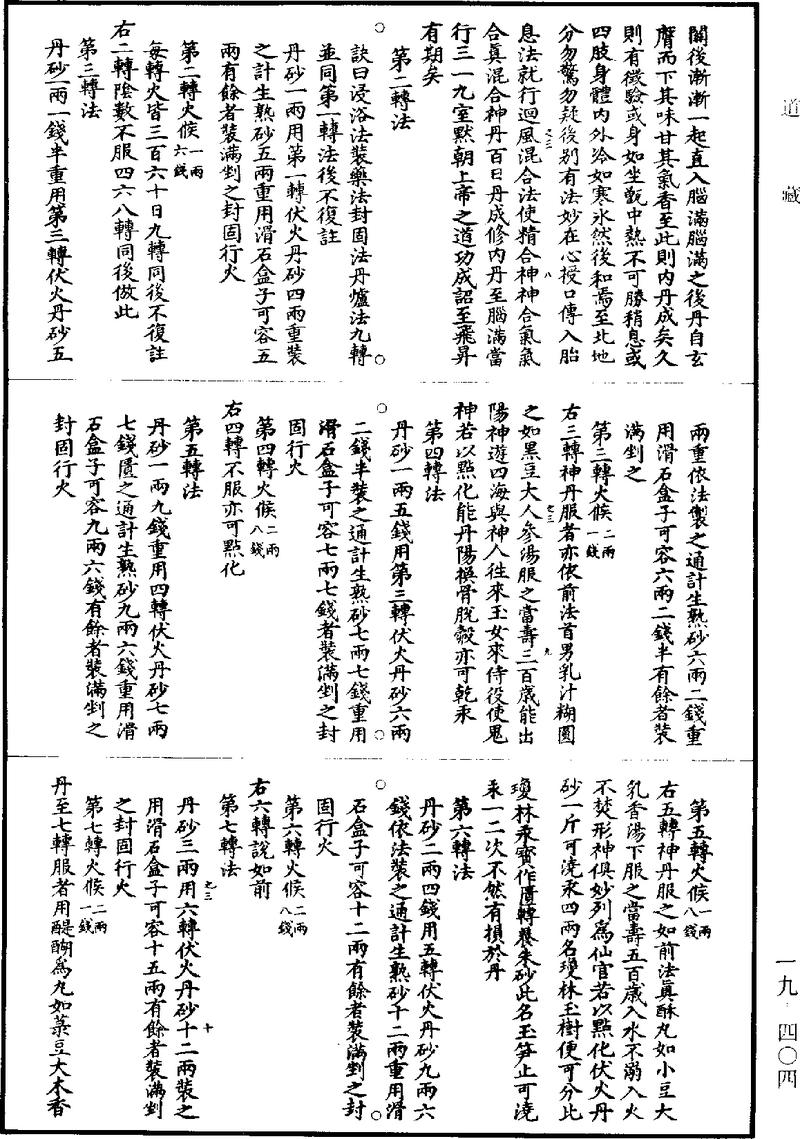 道藏
關後漸漸一起直入腦滿腦滿之後丹自玄
膺而下其味甘其氣香至此則內丹成矣久
則有徵驗或身如坐甑中熱不可勝稍息或
四肢身體內外冷如寒氷然後和焉至北地
分勿驚勿疑後別有法妙在心授口傳入胎
息法就行迴風混合法使精合神神合氣氣
合眞混合神丹百日丹成修內丹至腦滿當
行三一九室默朝上帝之道功成詔至飛昇
有期矣
第二轉法
訣曰浸浴法裝藥法封固法丹爐法九轉
並同第一轉法後不復註
丹砂一兩用第一轉伏火丹砂四兩重裝
之計生熟砂五兩重用滑石盒子可容五
兩有餘者裝滿剉之封固行火
第二轉火候一兩六錢
每轉火皆三百六十日九轉同後不復註
右二轉陰數不服四六八轉同後倣此
第三轉法
丹砂一兩一錢半重用第二轉伏火丹砂五
兩重依法製之通計生熟砂六兩二錢重
用滑石盒子可容六兩二錢半有餘者裝
滿剉之
第三轉火候二兩一錢
右三轉神丹服者亦依前法首男乳汁糊圓
之如黑豆大人參湯服之當壽三百歲能出
陽神遊四海與神人徃來玉女來侍役使鬼
神若以點化能丹陽換骨脫殼亦可乾汞
第四轉法
丹砂一兩五錢用第三轉伏火丹砂六兩
二錢半裝之通計生熟砂七兩七錢重用
滑石盒子可容七兩七錢者裝滿剉之封
固行火
第四轉火候二兩八錢
右四轉不服亦可點化
第五轉法
丹砂一兩九錢重用四轉伏火丹砂七兩
七錢匱之通計生熟砂九兩六錢重用滑
石盒子可容九兩六錢有餘者裝滿剉之
封固行火
第五轉火候一兩八錢
右五轉神丹服之如前法眞酥丸如小豆大
乳香湯下服之當壽五百歲入水不溺入火
不焚形神俱妙列爲仙官若以點化伏火丹
砂一斤可澆汞四兩名瓊林玉樹便可分此
瓊林汞寳作匱轉養朱砂此名玉笋止可澆
汞一二次不然有損於丹
第六轉法
丹砂二兩四錢用五轉伏火丹砂九兩六
錢依法裝之通計生熟砂十二兩重用滑
石盒子可容十二兩有餘者裝滿剉之封
固行火
第六轉火候二兩八錢
右六轉說如前
第七轉法
丹砂三兩用六轉伏火丹砂十二兩裝之
用滑石盒子可容十五兩有餘者裝滿剉
之封固行火
第七轉火候二兩一錢
丹至七轉服者用醍醐爲丸如菉豆大木香
一九·四〇四